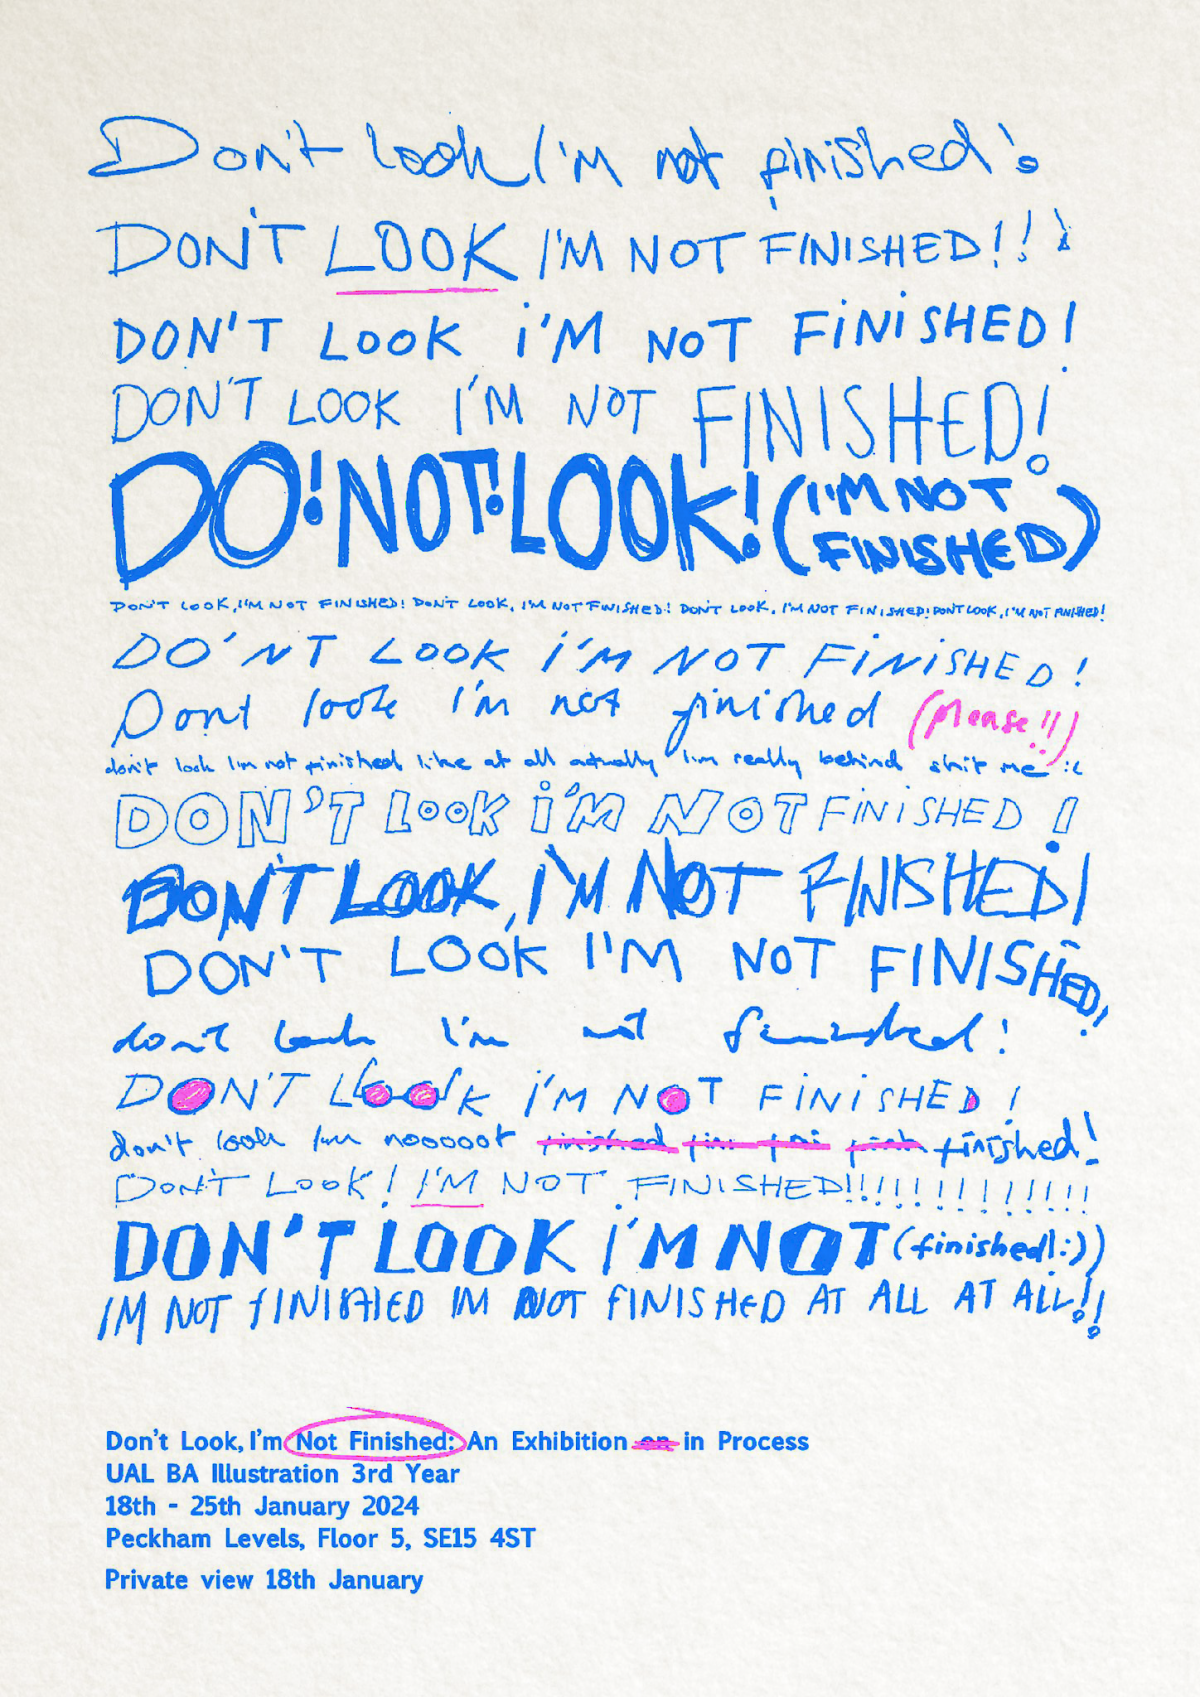 Don't look I'm not finished!
DON'T LOOK I'M NOT FINISHED!!!
DON'T LOOK i'M NOT FiNiSHED!
DON'T LOOK I'M NOT FINISHED!
DO! NOT! LOOK! (I'M NOT FINISHED)
DON'T LOOK, I'M NOT FINISHED! DON'T LOOK, I'M NOT FINISHED! DON'T LOOK, I'M NOT FINISHED! DON'T LOOK, I'M NOT FINISHED!
DO'NT LOOK i'M NOT FiNiSHED!
Dont look I'm not finished (please!!)
don't look I'm not finished like at all actually I'm really behind shit me :(
DON'T LOOK i'M NOT FiNiSHED!
DON'T LOOK, I'M NOT FINISHED!
DON'T LOOK I'M NOT FINISHED!
don't look I'm not finished!
DON'T LOOK i'M NOT FiNiSHED!
don't look I'm nooooot finished fin fini finish finished!
DON'T LOOK! I'M NOT FINISHED!!!!!!!!!!!!!!
DON'T LOOK i'M NOT (finished!:))
IM NOT fINISHED IM NOT fINISHED AT ALL AT ALL!!
Don't Look, I'm Not Finished: An Exhibition on in Process
UAL BA Illustration 3rd Year
18th - 25th January 2024
Peckham Levels, Floor 5, SE15 4ST
Private view 18th January